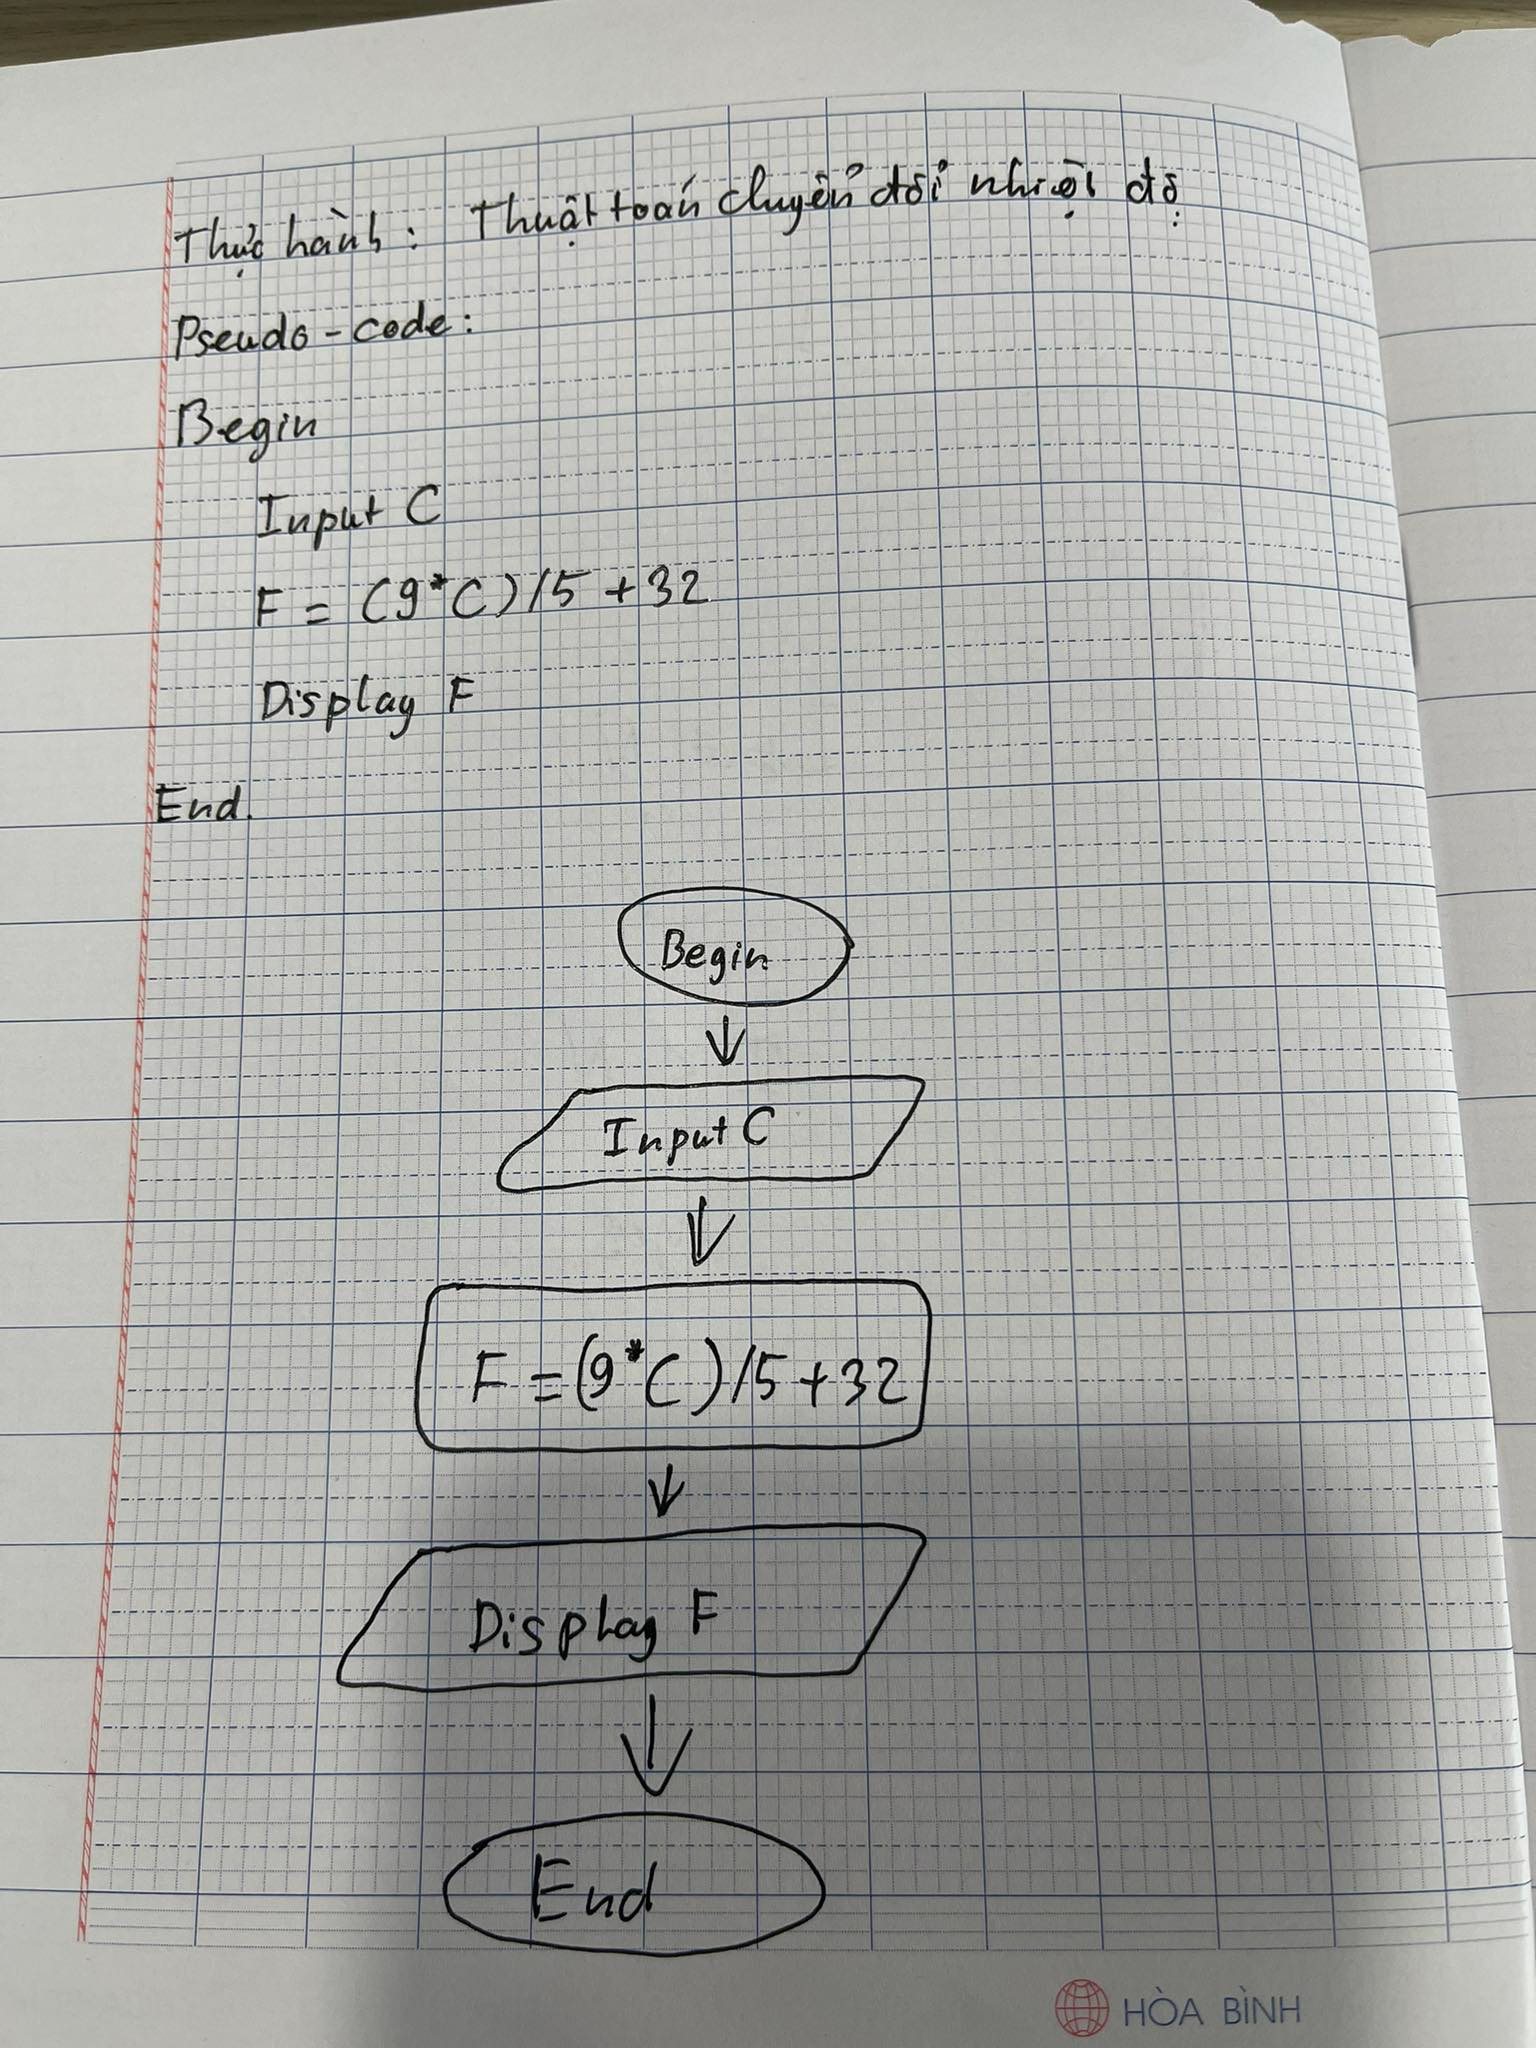 Thực hành: Thuật toán chuyển đổi nhiệt độ
Pseudo-code:
Begin
Input C
F = (9*C)/5 + 32
Display F
End.
Begin
Input C
F = (9*C)/5 + 32
Display F
End
HÒA BÌNH